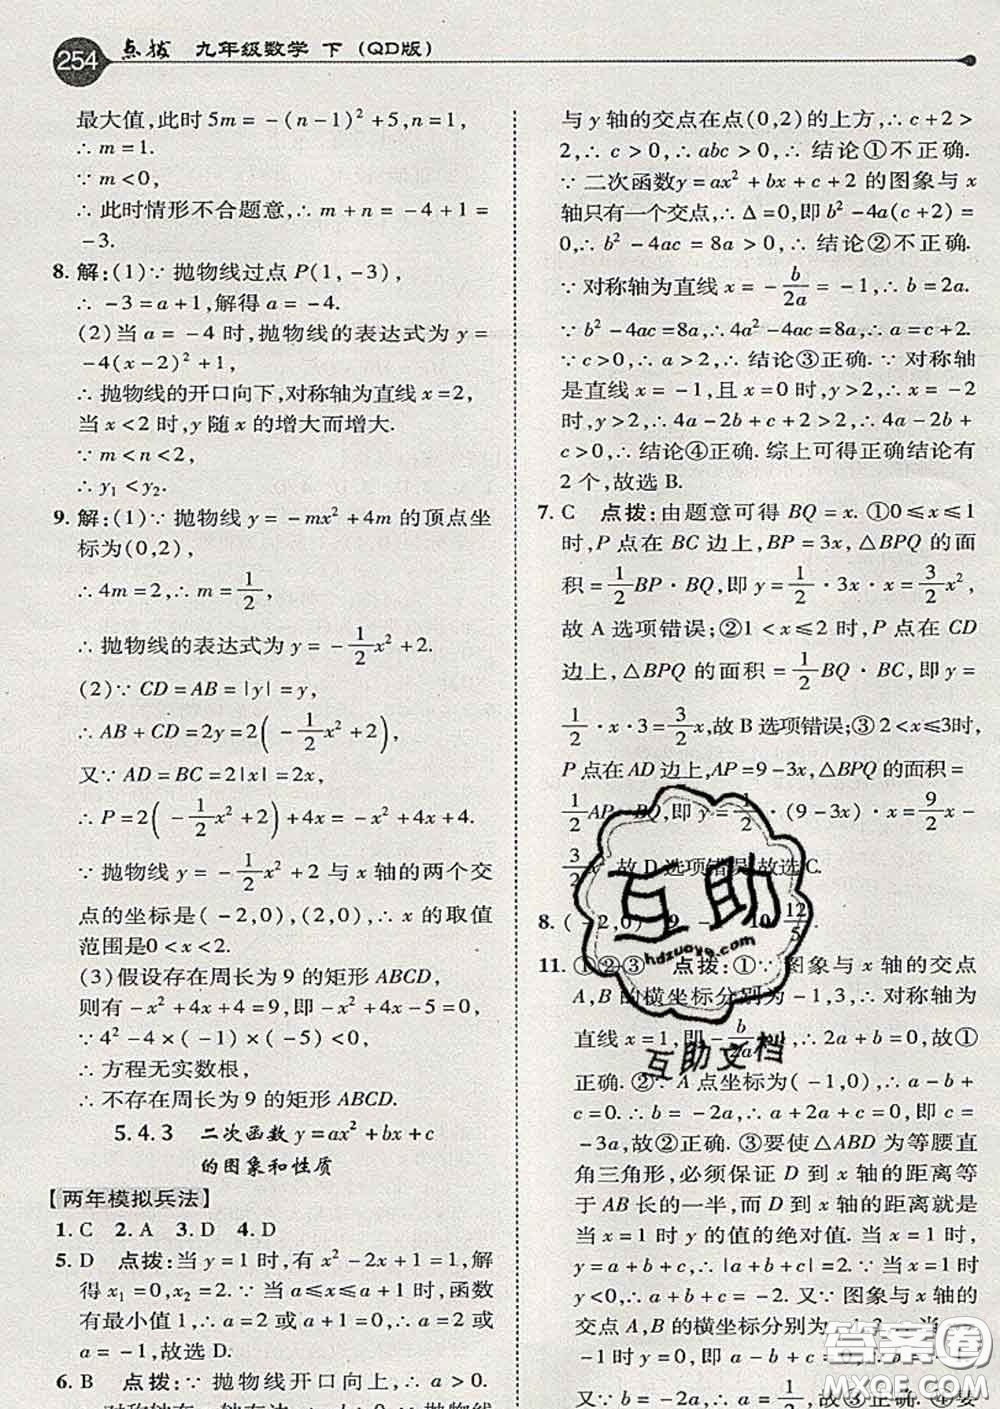 254 点拨 九年级数学 下 (QD版)
最大值,此时 5m = -(n-1)² + 5,n = 1,
∴ m = 1.
∵ m < 0,
∴ 此时情形不合题意,∴ m + n = -4 + 1 =
-3.
8. 解:(1)∵ 抛物线过点 P(1, -3),
∴ -3 = a + 1,解得 a = -4.
(2)当 a = -4 时,抛物线的表达式为 y =
-4(x-2)² + 1,
∴ 抛物线的开口向下,对称轴为直线 x = 2,
当 x < 2 时,y 随 x 的增大而增大.
∵ m < n < 2,
∴ y₁ < y₂.
9. 解:(1)∵ 抛物线 y = -mx² + 4m 的顶点坐
标为(0,2),
∴ 4m = 2,∴ m = 1/2,
∴ 抛物线的表达式为 y = -1/2 x² + 2.
(2)∵ CD = AB = |y| = y,
∴ AB + CD = 2y = 2(-1/2 x² + 2),
又∵ AD = BC = 2|x| = 2x,
∴ P = 2(-1/2 x² + 2) + 4x = -x² + 4x + 4.
∵ 抛物线 y = -1/2 x² + 2 与 x 轴的两个交
点的坐标是(-2,0),(2,0),∴ x 的取值
范围是0 < x < 2.
(3)假设存在周长为 9 的矩形 ABCD,
则有 -x² + 4x + 4 = 9,∴ -x² + 4x - 5 = 0,
∵ 4² - 4 × (-1) × (-5) < 0,
∴ 方程无实数根,
∴ 不存在周长为 9 的矩形 ABCD.
5.4.3 二次函数 y = ax² + bx + c
的图象和性质
【两年模拟兵法】
1. C 2. A 3. D 4. D
5. D 点拨:当 y = 1 时,有 x² - 2x + 1 = 1,解
得 x₁ = 0,x₂ = 2.∵ 当 a ≤ x ≤ a + 1 时,函数
有最小值 1,∴ a = 2 或 a + 1 = 0,∴ a = 2 或
a = -1,故选 D.
6. B 点拨:∵ 抛物线开口向上,∴ a > 0.
与 y 轴的交点在点(0,2)的上方,∴ c + 2 >
2,∴ c > 0,∴ abc > 0,∴ 结论①不正确.
∵ 二次函数y = ax² + bx + c + 2 的图象与 x
轴只有一个交点,∴ Δ = 0,即 b² - 4a(c + 2) =
0,∴ b² - 4ac = 8a > 0,∴ 结论②不正确.
∵ 对称轴为直线 x = -b/2a = -1,∴ b = 2a.
∵ b² - 4ac = 8a,∴ 4a² - 4ac = 8a,∴ a = c + 2.
∵ c > 0,∴ a > 2,∴ 结论③正确.∵ 对称轴
是直线 x = -1,且 x = 0 时,y > 2,∴ x = -2
时,y > 2,∴ 4a - 2b + c + 2 > 2,∴ 4a - 2b +
c > 0,∴ 结论④正确. 综上可得正确结论有
2 个,故选 B.
7. C 点拨:由题意可得 BQ = x. ①0 ≤ x ≤ 1
时,P 点在 BC 边上,BP = 3x,△BPQ 的面
积 = 1/2 BP · BQ,即 y = 1/2 · 3x · x = 3/2 x²,
故 A 选项错误;②1 < x ≤ 2 时,P 点在 CD
边上,△BPQ 的面积 = 1/2 BQ · BC,即 y =
1/2 · x · 3 = 3/2 x,故 B 选项错误;③ 2 < x ≤ 3时,
P 点在 AD 边上,AP = 9 - 3x,△BPQ 的面积 =
1/2 AP · BQ,即 y = 1/2 · (9 - 3x) · x = 9/2 x -
3/2 x²,故 D 选项错误,故选 C.
8. (-2,0) 9. 10. 12/5
11. ①②③ 点拨:①∵ 图象与 x 轴的交点
A,B 的横坐标分别为 -1,3,∴ 对称轴为
直线 x = 1,即 -b/2a = 1,∴ 2a + b = 0,故①
正确. ②∵ A 点坐标为(-1,0),∴ a - b +
c = 0.∵ b = -2a,∴ a + 2a + c = 0,即 c =
-3a,故②正确. ③要使△ABD 为等腰直
角三角形,必须保证 D 到 x 轴的距离等
于 AB 长的一半,而 D 到 x 轴的距离为
当 x = 1 时 y 的值的绝对值. 当 x = 1 时,
y = a + b + c,∴ |a + b + c| = 2.∵ 当 x = 1 时
y < 0,∴ a + b + c = -2.又∵ 图象与 x 轴的
交点 A,B 的横坐标分别为
-1 时 y = 0,即 a - b + c = 0,
又∵ b = -2a,∴ a = 1/2,故③正确. ④要
互助
hdzuoye.com
互助文档
答案圈
MXQE.COM